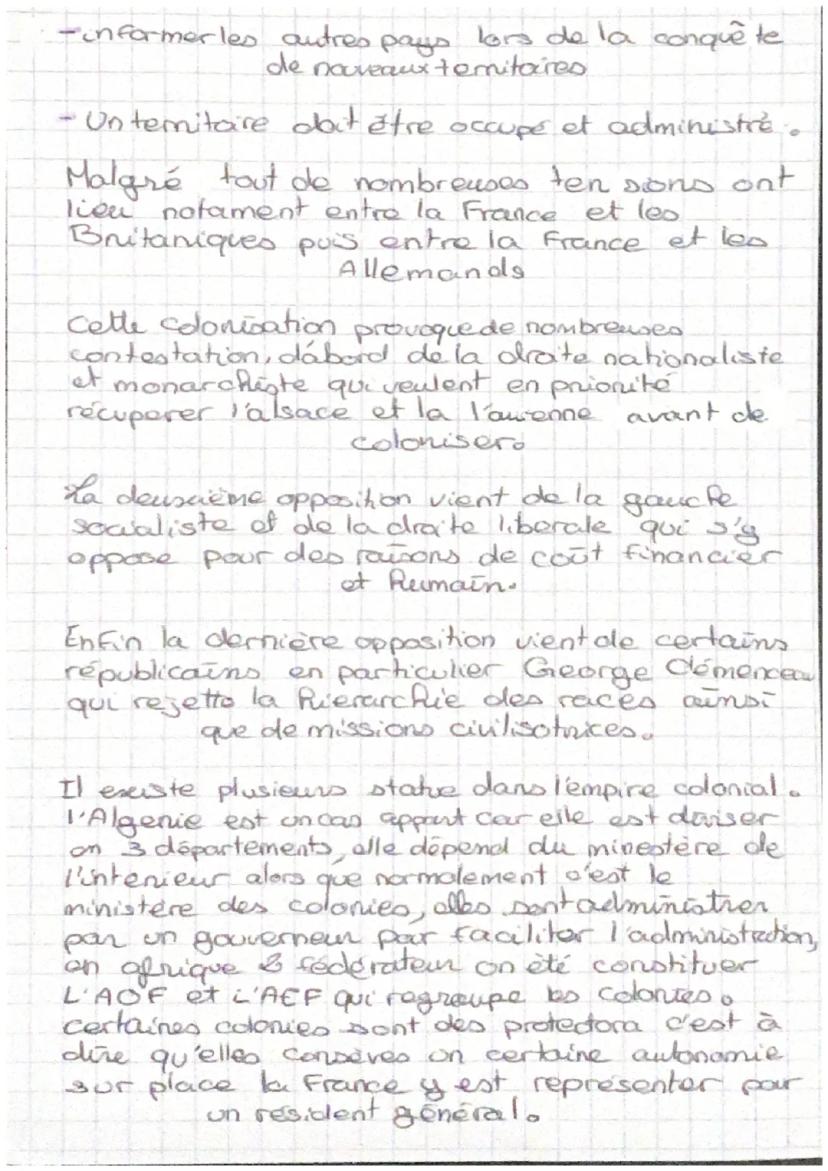 - informer les autres pays lors de la conquête
de nouveaux territoires
- Un territoire doit être occupé et administré.
Malgré tout de nombreuses tensions ont
lieu notament entre la France et les
Britaniques puis entre la France et les
Allemands
Cette colonisation provoque de nombreuses
contestation, d'abord de la droite nationaliste
et monarchiste qui veulent en priorité
récuperer l'alsace et la l'aurenne avant de
coloniser.
La deuxième opposition vient de la gauche
socialiste et de la droite liberale qui s'y
oppose pour des raisons de coût financier
et humain.
Enfin la dernière opposition vient de certains
républicains en particulier George Clémenceau
qui rejette la hierarchie des races ainsi
que de missions civilisatrices.
Il existe plusieurs statue dans l'empire colonial.
l'Algerie est un cas appart car elle est diviser
en 3 départements, elle dépend du minestère de
l'interieur alors que normalement c'est le
ministère des colonies, elles sont administrer
par un gouverneur pour faciliter l'administration,
en afrique fédérateur on été constituer
L'AOF et L'AEF qui regroupe les colonies.
certaines colonies sont des protectora c'est à
dire qu'elles consèves un certaine autonomie
sur place la France y est représenter par
un resident général.